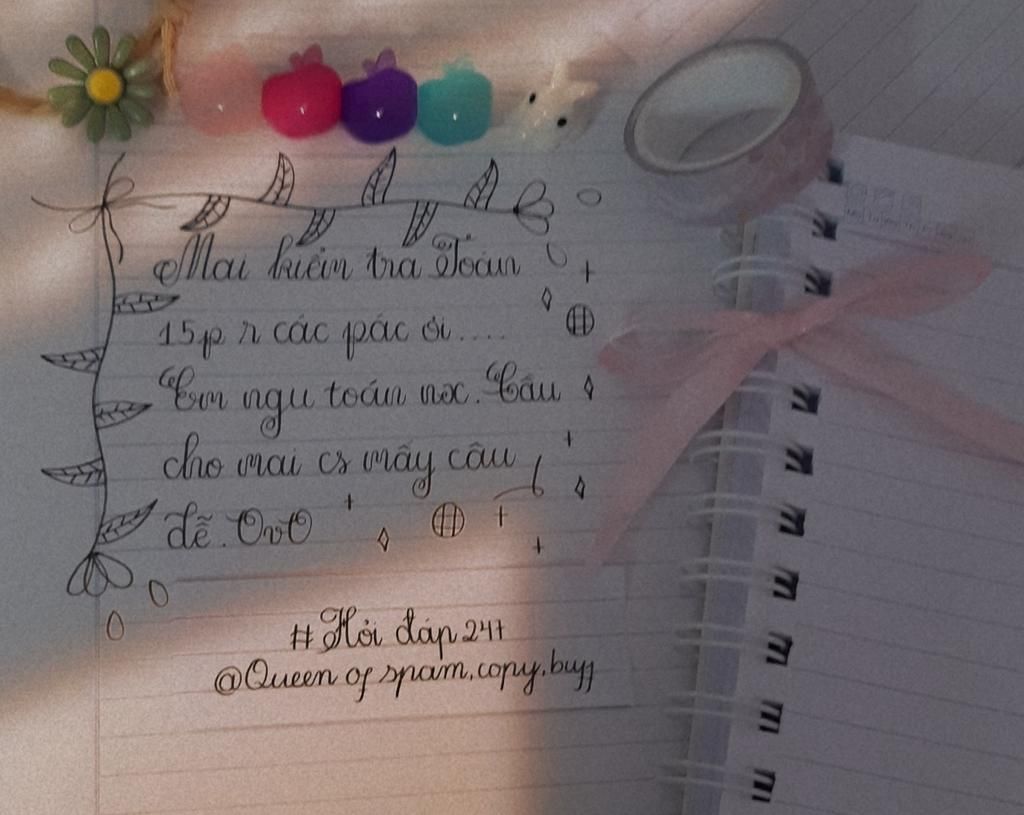 Mai kiểm tra Toán
15p r các pác ơi....
Em ngu toán mx. Cầu
cho mai cs mấy câu
dễ. OvO
# Hỏi đáp 247
@Queen of spam.copy.buff